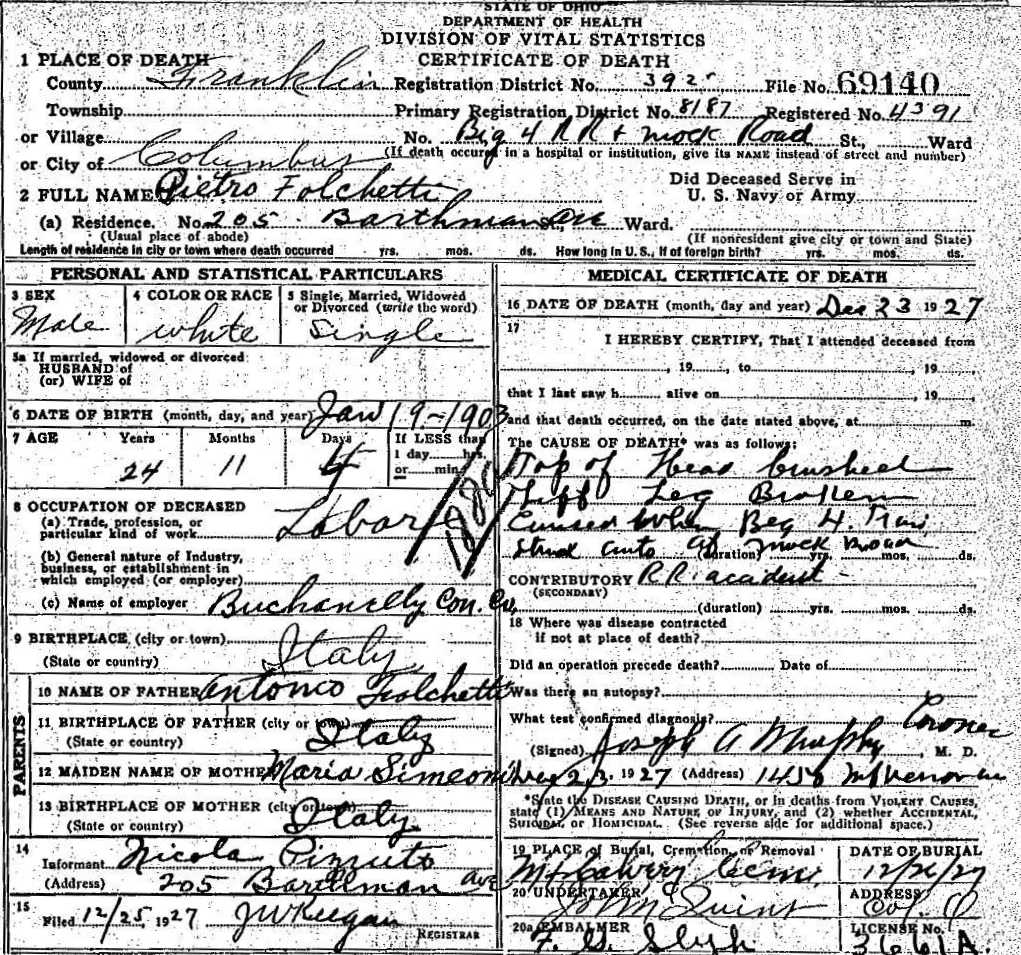 STATE OF OHIO
DEPARTMENT OF HEALTH
DIVISION OF VITAL STATISTICS
CERTIFICATE OF DEATH
1 PLACE OF DEATH
County Franklin Registration District No. 392 File No. 69140
Township Primary Registration District No. 8187 Registered No. 4391
or Village No. Big 4 RR + Mock Road St., Ward
or City of Columbus (If death occured in a hospital or institution, give its NAME instead of street and number)
2 FULL NAME Pietro Folchetti Did Deceased Serve in
U. S. Navy or Army
(a) Residence. No. 205 Barthman Ave St., Ward.
(Usual place of abode) (If nonresident give city or town and State)
Length of residence in city or town where death occurred yrs. mos. ds. How long in U.S., if of foreign birth? yrs. mos. ds.
PERSONAL AND STATISTICAL PARTICULARS
3 SEX 4 COLOR OR RACE 5 Single, Married, Widowed
or Divorced (write the word)
Male white Single
5a If married, widowed or divorced
HUSBAND of
(or) WIFE of
6 DATE OF BIRTH (month, day, and year) Jan 19-1903
7 AGE Years Months Days If LESS than
1 day hrs.
or min.
24 11 4
8 OCCUPATION OF DECEASED
(a) Trade, profession, or
particular kind of work Labor
(b) General nature of Industry,
business, or establishment in
which employed (or employer)
(c) Name of employer Con. Co.
9 BIRTHPLACE (city or town)
(State or country) Italy
PARENTS
10 NAME OF FATHER Antonio Folchetti
11 BIRTHPLACE OF FATHER (city or town)
(State or country) Italy
12 MAIDEN NAME OF MOTHER Maria Simeoni
13 BIRTHPLACE OF MOTHER (city or town)
(State or country) Italy
14
Informant Nicola Pizzuto
(Address) 205 Barthman Ave
15
Filed 12/25, 1927 J W Keegan
REGISTRAR
MEDICAL CERTIFICATE OF DEATH
16 DATE OF DEATH (month, day and year) Dec 23 1927
17
I HEREBY CERTIFY, That I attended deceased from
, 19 , to , 19
that I last saw h alive on , 19
and that death occurred, on the date stated above, at m.
The CAUSE OF DEATH* was as follows:
Top of Head Crushed
Leg Broken
Caused when Beg 4
Struck auto at Mock Road
(duration) yrs. mos. ds.
CONTRIBUTORY R.R. accident
(SECONDARY)
(duration) yrs. mos. ds.
18 Where was disease contracted
if not at place of death?
Did an operation precede death? Date of
Was there an autopsy?
What test confirmed diagnosis? Coroner
(Signed) Joseph A Murphy, M. D.
Dec 23 1927 (Address)
*State the DISEASE CAUSING DEATH, or in deaths from VIOLENT CAUSES,
state (1) MEANS AND NATURE OF INJURY, and (2) whether ACCIDENTAL,
SUICIDAL, or HOMICIDAL. (See reverse side for additional space.)
19 PLACE of Burial, Cremation, or Removal DATE OF BURIAL
Mt Calvery Cem. 12/26/27
20 UNDERTAKER ADDRESS
Col. O
20a EMBALMER LICENSE No.
3661A